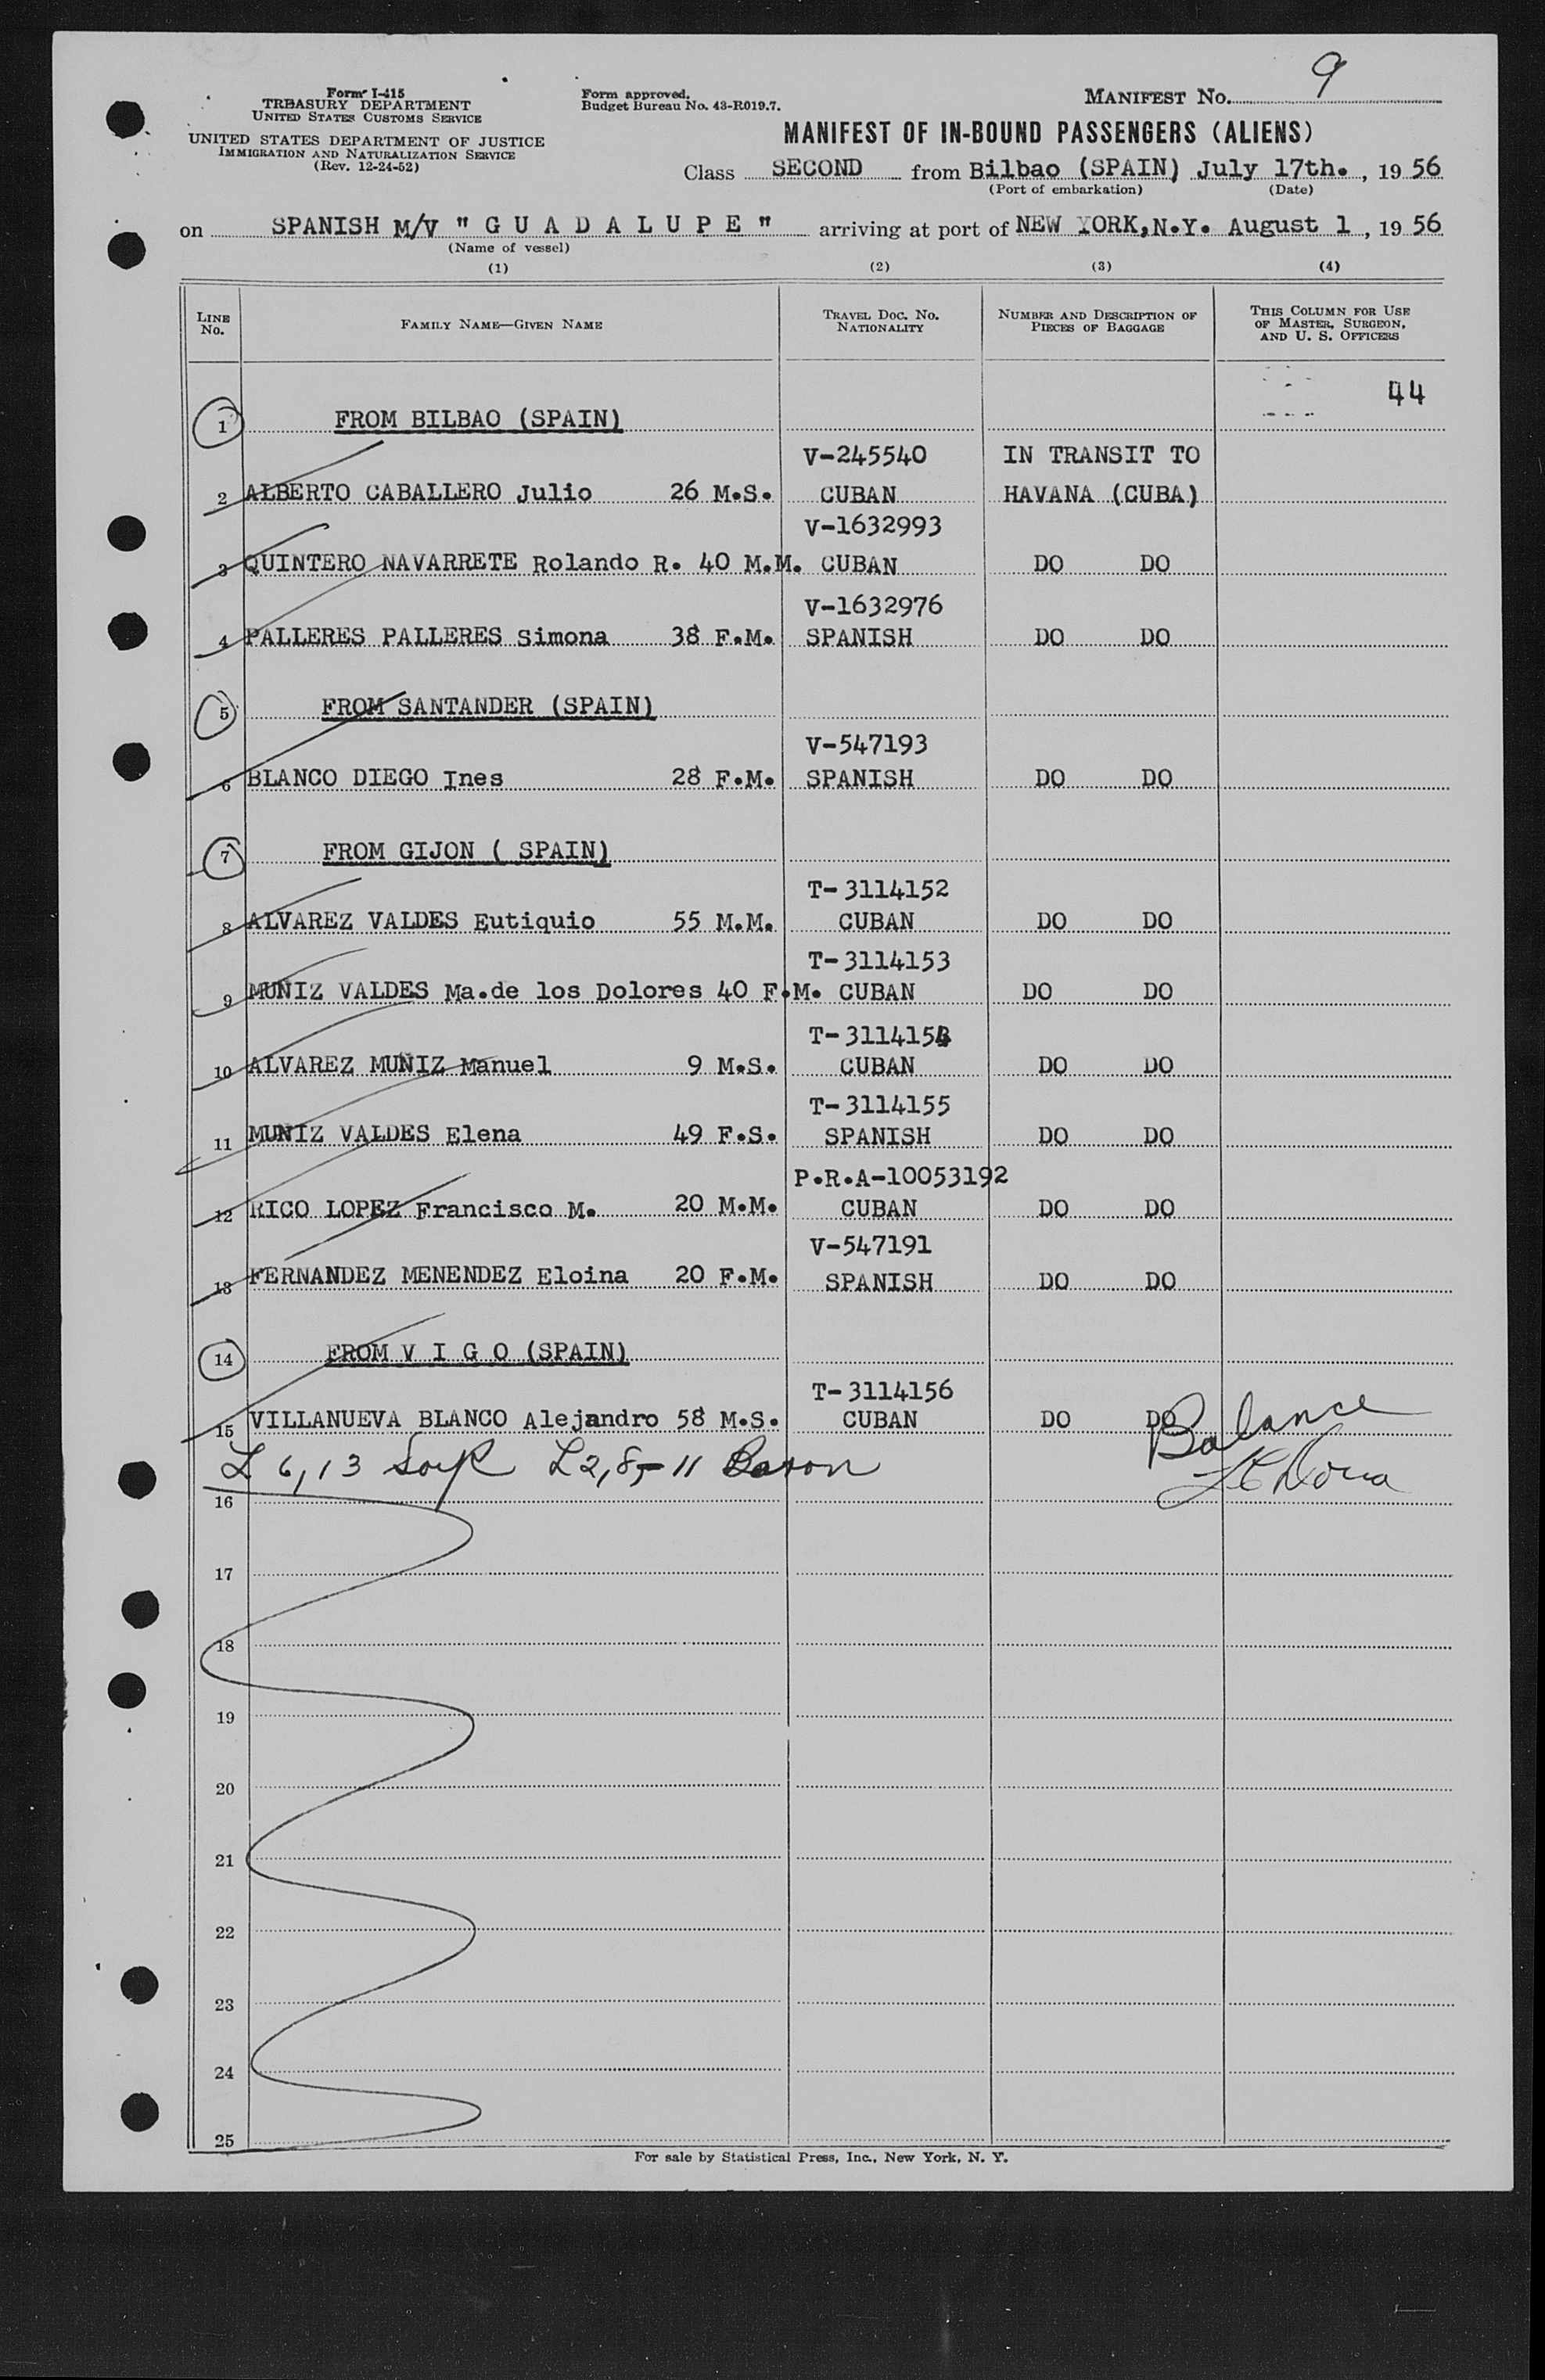 9
Form I-415
TREASURY DEPARTMENT
UNITED STATES CUSTOMS SERVICE
UNITED STATES DEPARTMENT OF JUSTICE
IMMIGRATION AND NATURALIZATION SERVICE
(Rev. 12-24-52)
Form approved.
Budget Bureau No. 43-R019.7.
MANIFEST No.
MANIFEST OF IN-BOUND PASSENGERS (ALIENS)
Class SECOND from Bilbao (SPAIN) July 17th. , 19 56
(Port of embarkation) (Date)
on SPANISH M/V " G U A D A L U P E " arriving at port of NEW YORK, N.Y. August 1 , 19 56
(Name of vessel)
(1) (2) (3) (4)
LINE No. FAMILY NAME—GIVEN NAME TRAVEL DOC. NO. NATIONALITY NUMBER AND DESCRIPTION OF PIECES OF BAGGAGE THIS COLUMN FOR USE OF MASTER, SURGEON, AND U. S. OFFICERS
44
1 FROM BILBAO (SPAIN)
V-245540 IN TRANSIT TO
2 ALBERTO CABALLERO Julio 26 M.S. CUBAN HAVANA (CUBA)
V-1632993
3 QUINTERO NAVARRETE Rolando R. 40 M.M. CUBAN DO DO
V-1632976
4 PALLERES PALLERES Simona 38 F.M. SPANISH DO DO
5 FROM SANTANDER (SPAIN)
V-547193
6 BLANCO DIEGO Ines 28 F.M. SPANISH DO DO
7 FROM GIJON ( SPAIN)
T-3114152
8 ALVAREZ VALDES Eutiquio 55 M.M. CUBAN DO DO
T-3114153
9 MUÑIZ VALDES Ma.de los Dolores 40 F.M. CUBAN DO DO
T-3114154
10 ALVAREZ MUÑIZ Manuel 9 M.S. CUBAN DO DO
T-3114155
11 MUÑIZ VALDES Elena 49 F.S. SPANISH DO DO
P.R.A-10053192
12 RICO LOPEZ Francisco M. 20 M.M. CUBAN DO DO
V-547191
13 FERNANDEZ MENENDEZ Eloina 20 F.M. SPANISH DO DO
14 FROM V I G O (SPAIN)
T-3114156
15 VILLANUEVA BLANCO Alejandro 58 M.S. CUBAN DO DO
Balance
L 6, 13 L 2, 8, 11
16
17
18
19
20
21
22
23
24
25
For sale by Statistical Press, Inc., New York, N. Y.